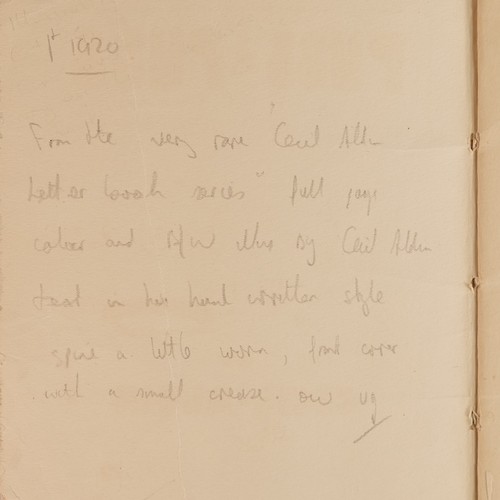 1st 1920
From the very rare "Cecil Aldin
Letter book series" full page
colour and B/W illus by Cecil Aldin
text in his hand written style
spine a little worn, front cover
with a small crease. ow vg